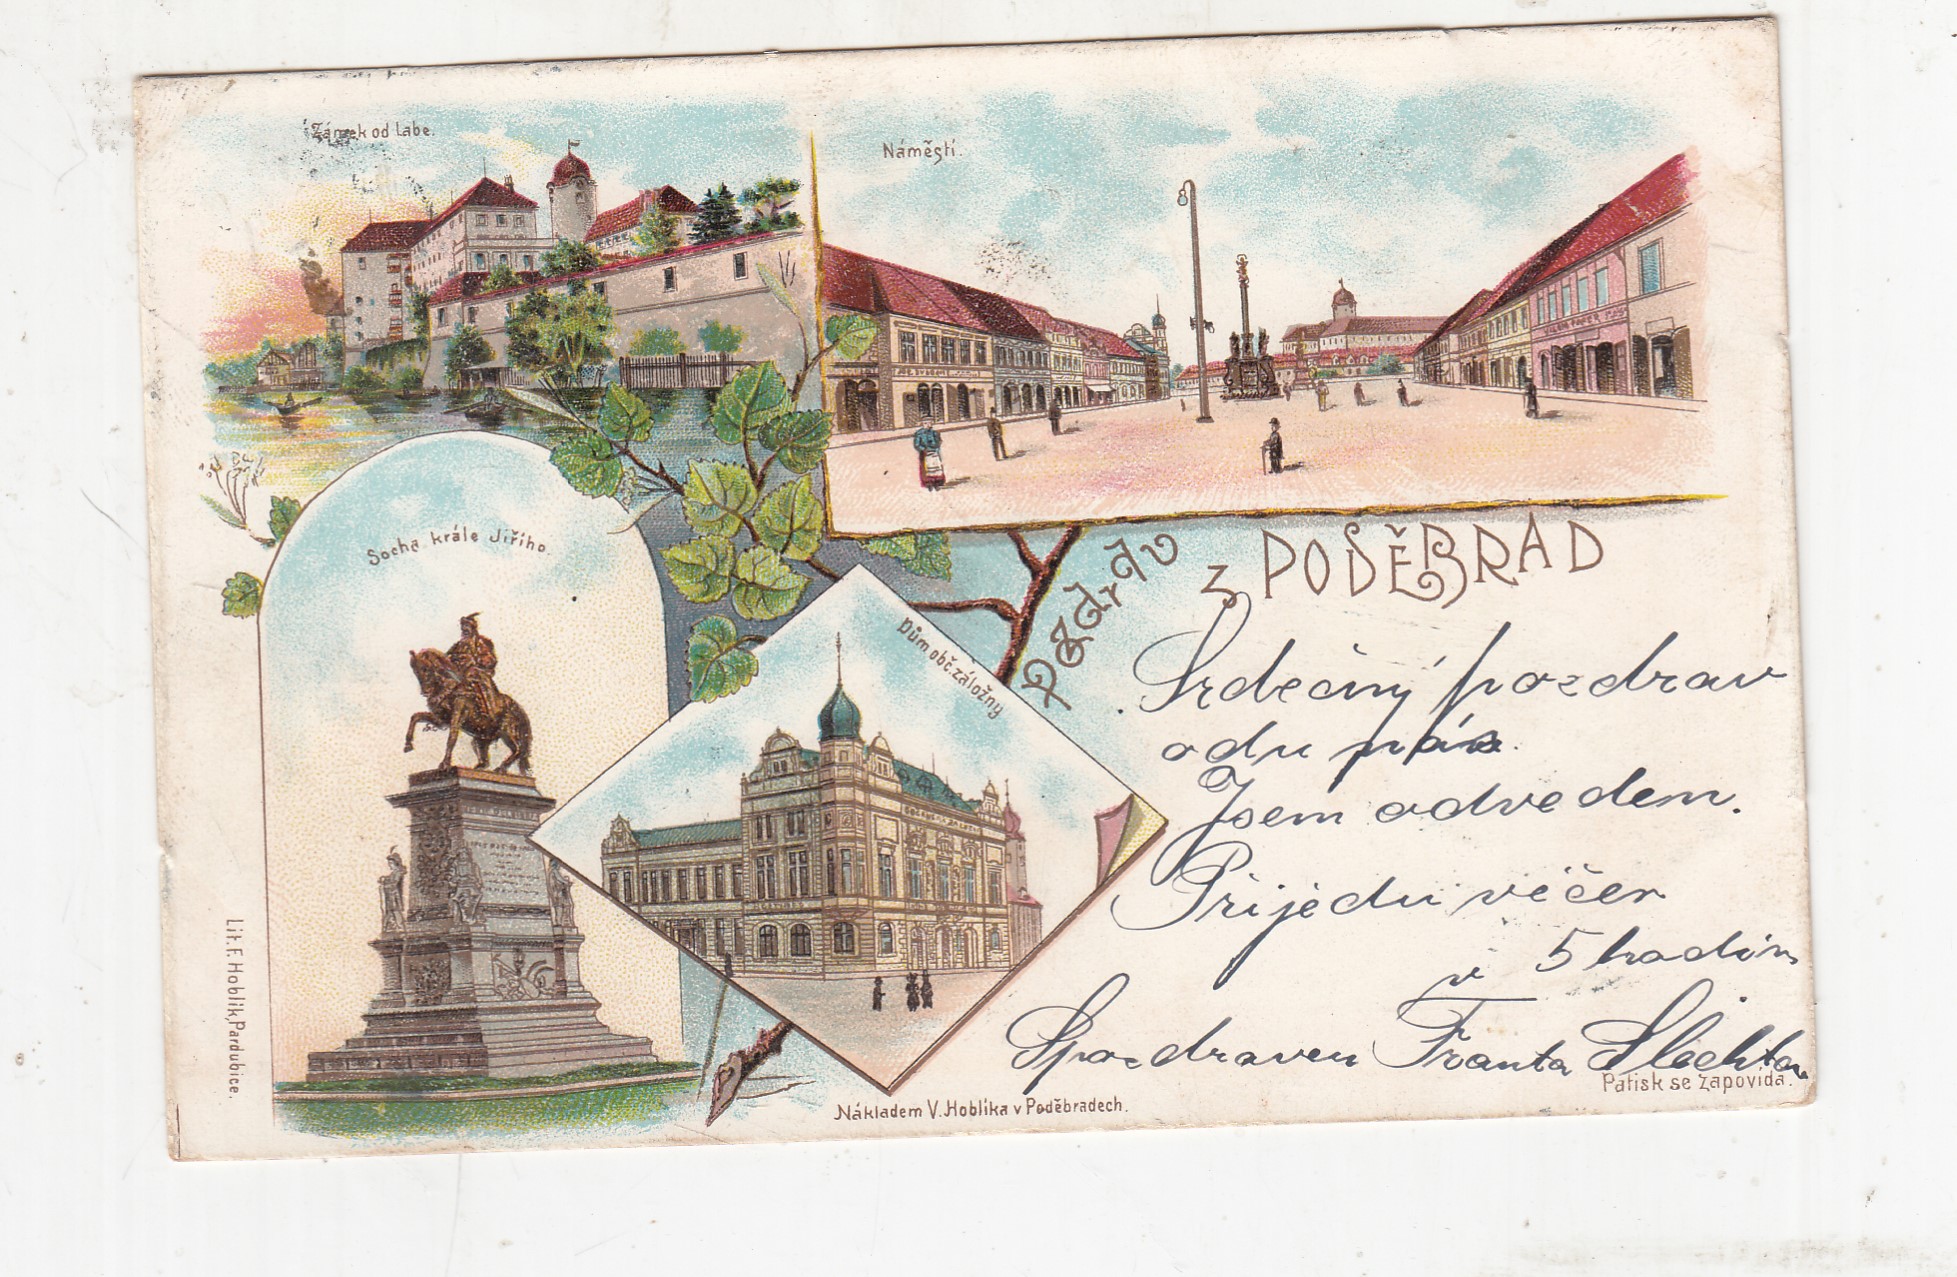 Zámek od Labe.
Náměstí.
Socha krále Jiřího.
Dům obč. záložny
Pozdrav
z PODĚBRAD
Srdečný pozdrav
odu nás.
Jsem odveden.
Přijedu večer
v 5 hodin
Spozdraven Franta Šlechta
Patisk se zapovídá.
Nákladem V. Hoblíka v Poděbradech.
Lit. F. Hoblík, Pardubice.